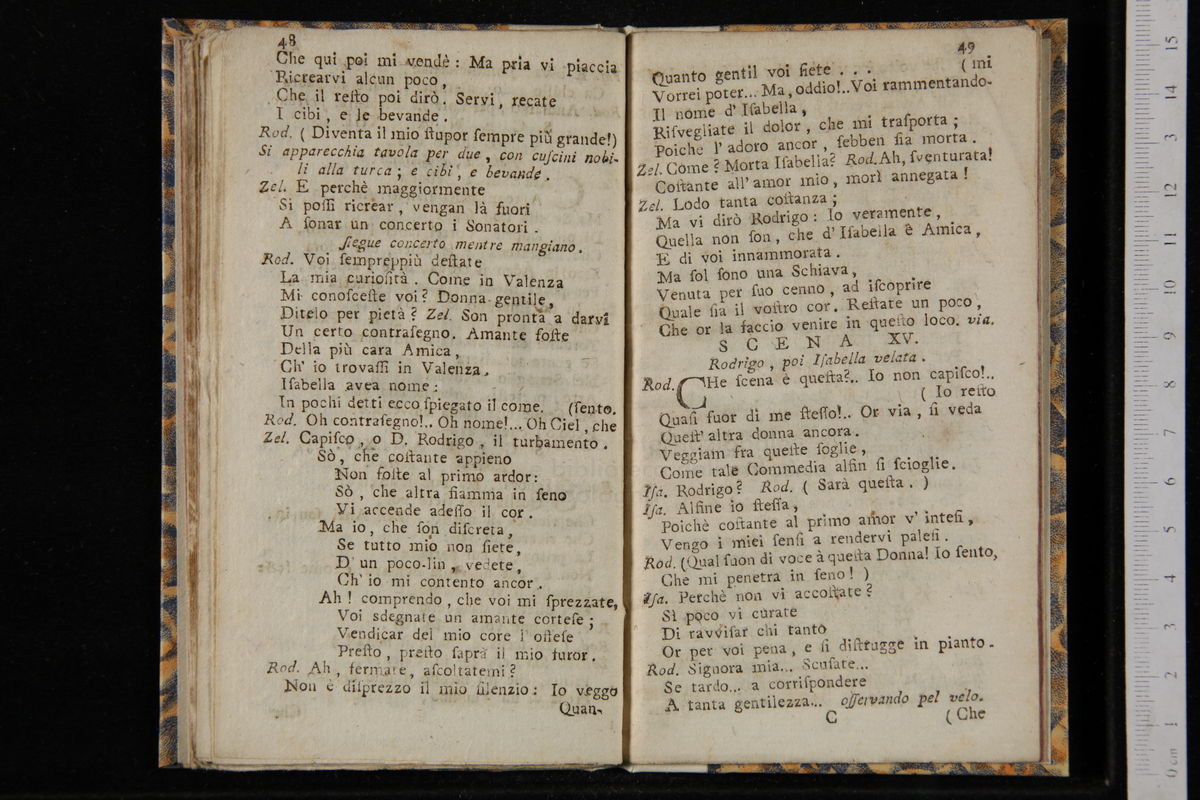 48
Che qui poi mi vendè : Ma pria vi piaccia
Ricrearvi alcun poco,
Che il reſto poi dirò. Servi, recate
I cibi, e le bevande.
Rod. ( Diventa il mio ſtupor ſempre più grande!)
Si apparecchia tavola per due, con cuſcini nobi-
li alla turca; e cibi, e bevande.
Zel. E perchè maggiormente
Si poſſi ricrear, vengan là fuori
A ſonar un concerto i Sonatori.
ſiegue concerto mentre mangiano.
Rod. Voi ſempreppiù deſtate
La mia curioſità. Come in Valenza
Mi conoſceſte voi? Donna gentile,
Ditelo per pietà? Zel. Son pronta a darvi
Un certo contraſegno. Amante foſte
Della più cara Amica,
Ch' io trovaſſi in Valenza,
Iſabella avea nome:
In pochi detti ecco ſpiegato il come. (ſento.
Rod. Oh contraſegno!.. Oh nome!... Oh Ciel, che
Zel. Capiſco, o D. Rodrigo, il turbamento.
Sò, che coſtante appieno
Non foſte al primo ardor:
Sò, che altra fiamma in ſeno
Vi accende adeſſo il cor.
Ma io, che ſon diſcreta,
Se tutto mio non ſiete,
D' un poco-lin, vedete,
Ch' io mi contento ancor.
Ah! comprendo, che voi mi ſprezzate,
Voi sdegnate un amante corteſe;
Vendicar del mio core l' offeſe
Preſto, preſto ſaprà il mio furor.
Rod. Ah, fermate, aſcoltatemi?
Non è diſprezzo il mio ſilenzio: Io veggo
Quan-
49
Quanto gentil voi ſiete . . . (mi
Vorrei poter... Ma, oddio!..Voi rammentando-
Il nome d' Iſabella,
Riſvegliate il dolor, che mi traſporta;
Poichè l' adoro ancor, ſebben ſia morta.
Zel. Come? Morta Iſabella? Rod. Ah, ſventurata!
Coſtante all' amor mio, morì annegata!
Zel. Lodo tanta coſtanza;
Ma vi dirò Rodrigo: Io veramente,
Quella non ſon, che d' Iſabella è Amica,
E di voi innammorata.
Ma ſol ſono una Schiava,
Venuta per ſuo cenno, ad iſcoprire
Quale ſia il voſtro cor. Reſtate un poco,
Che or la faccio venire in queſto loco. via.
SCENA XV.
Rodrigo, poi Iſabella velata.
Rod. CHe ſcena è queſta?.. Io non capiſco!..
( Io reſto
Quaſi fuor di me ſteſſo!.. Or via, ſi veda
Queſt' altra donna ancora.
Veggiam fra queſte ſoglie,
Come tale Commedia alfin ſi ſcioglie.
Iſa. Rodrigo? Rod. ( Sarà queſta. )
Iſa. Alfine io ſteſſa,
Poichè coſtante al primo amor v' inteſi,
Vengo i miei ſenſi a rendervi paleſi.
Rod. (Qual ſuon di voce à queſta Donna! Io ſento,
Che mi penetra in ſeno! )
Iſa. Perchè non vi accoſtate?
Sì poco vi curate
Di ravviſar chi tanto
Or per voi pena, e ſi diſtrugge in pianto.
Rod. Signora mia... Scuſate...
Se tardo... a corriſpondere
A tanta gentilezza... oſſervando pel velo.
C ( Che
0 cm 1 2 3 4 5 6 7 8 9 10 11 12 13 14 15